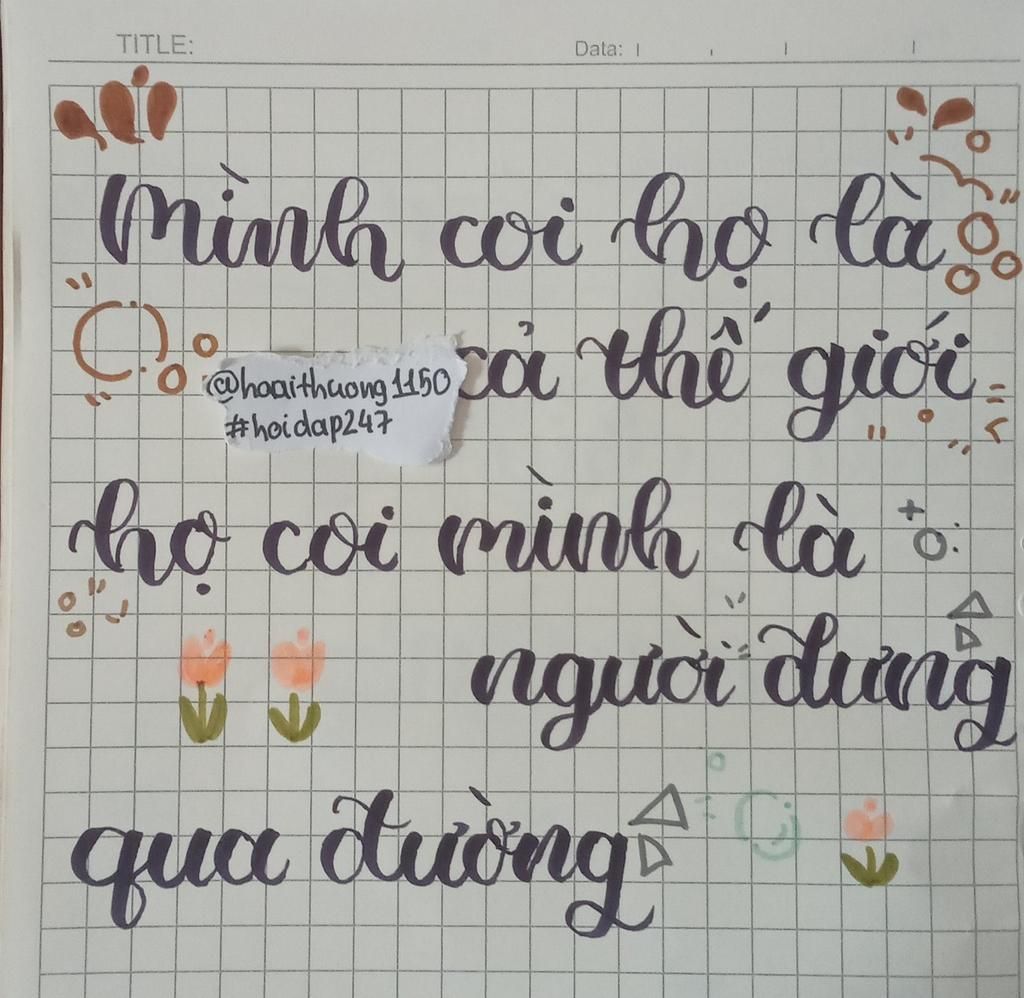 TITLE: Data:
Mình coi họ là
cả thế giới
@hoaithuong1150
#hoidap247
họ coi mình là
người dưng
qua đường